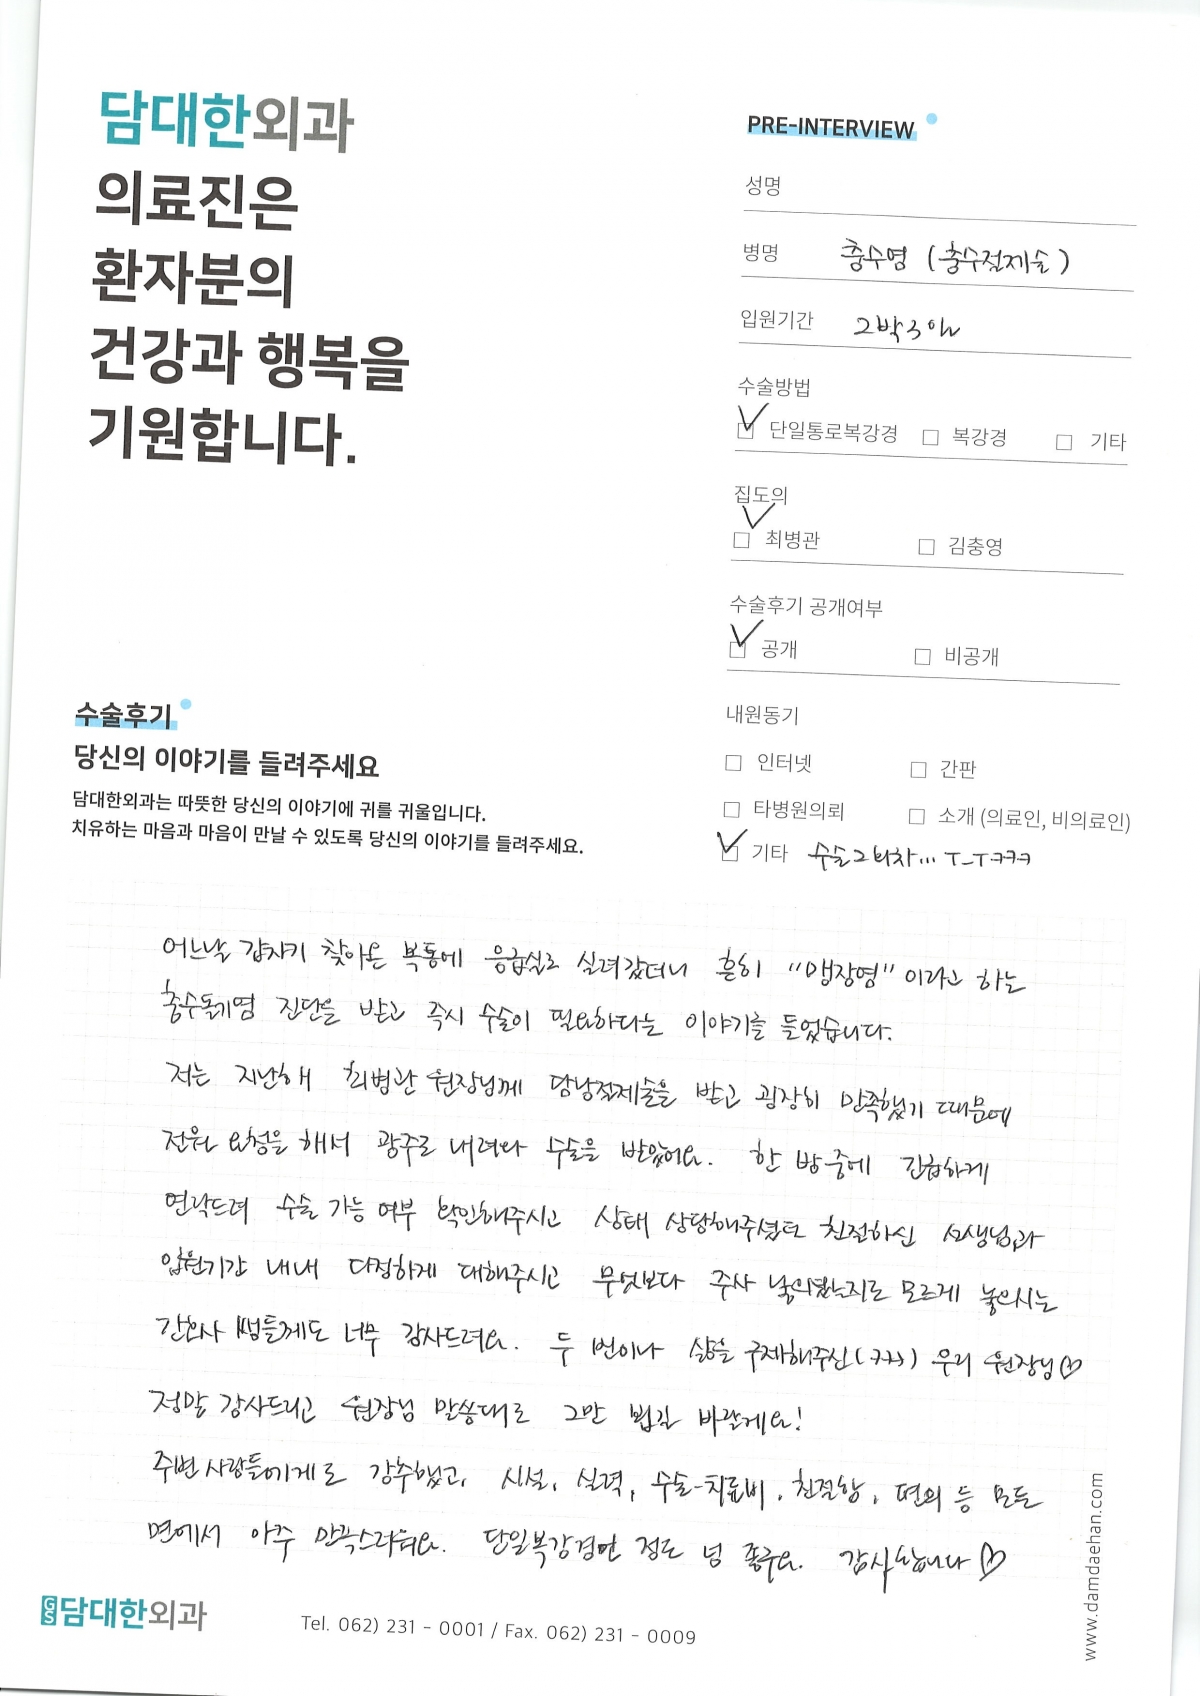 담대한외과
의료진은
환자분의
건강과 행복을
기원합니다.
PRE-INTERVIEW
성명
병명 충수염 (충수절제술)
입원기간 2박3일
수술방법
단일통로복강경 복강경 기타
집도의
최병관 김충영
수술후기 공개여부
공개 비공개
내원동기
인터넷 간판
타병원의뢰 소개 (의료인, 비의료인)
기타 수술 2회차... T_T ㅋㅋㅋ
수술후기
당신의 이야기를 들려주세요
담대한외과는 따뜻한 당신의 이야기에 귀를 귀울입니다.
치유하는 마음과 마음이 만날 수 있도록 당신의 이야기를 들려주세요.
어느날 갑자기 찾아온 복통에 응급실로 실려갔더니 흔히 "맹장염"이라고 하는
충수돌기염 진단을 받고 즉시 수술이 필요하다는 이야기를 들었습니다.
저는 지난해 최병관 원장님께 담낭절제술을 받고 굉장히 만족했기 때문에
전원 요청을 해서 광주로 내려와 수술을 받았어요. 한 밤중에 긴급하게
연락드려 수술 가능 여부 확인해주시고 상태 상담해주셨던 친절하신 선생님과
입원기간 내내 다정하게 대해주시고 무엇보다 주사 놓으셨는지도 모르게 놓으시는
간호사 쌤들께도 너무 감사드려요. 두 번이나 삶을 구제해주신(ㅋㅋㅋ) 우리 원장님♡
정말 감사드리고 원장님 말씀대로 그만 뵙길 바랄게요!
주변 사람들에게도 강추했고, 시설, 실력, 수술-치료비, 친절함, 편의 등 모든
면에서 아주 만족스러워요. 단일복강경인 점도 넘 좋구요. 감사합니다♡
GS 담대한외과
Tel. 062) 231 - 0001 / Fax. 062) 231 - 0009
www.damdaehan.com